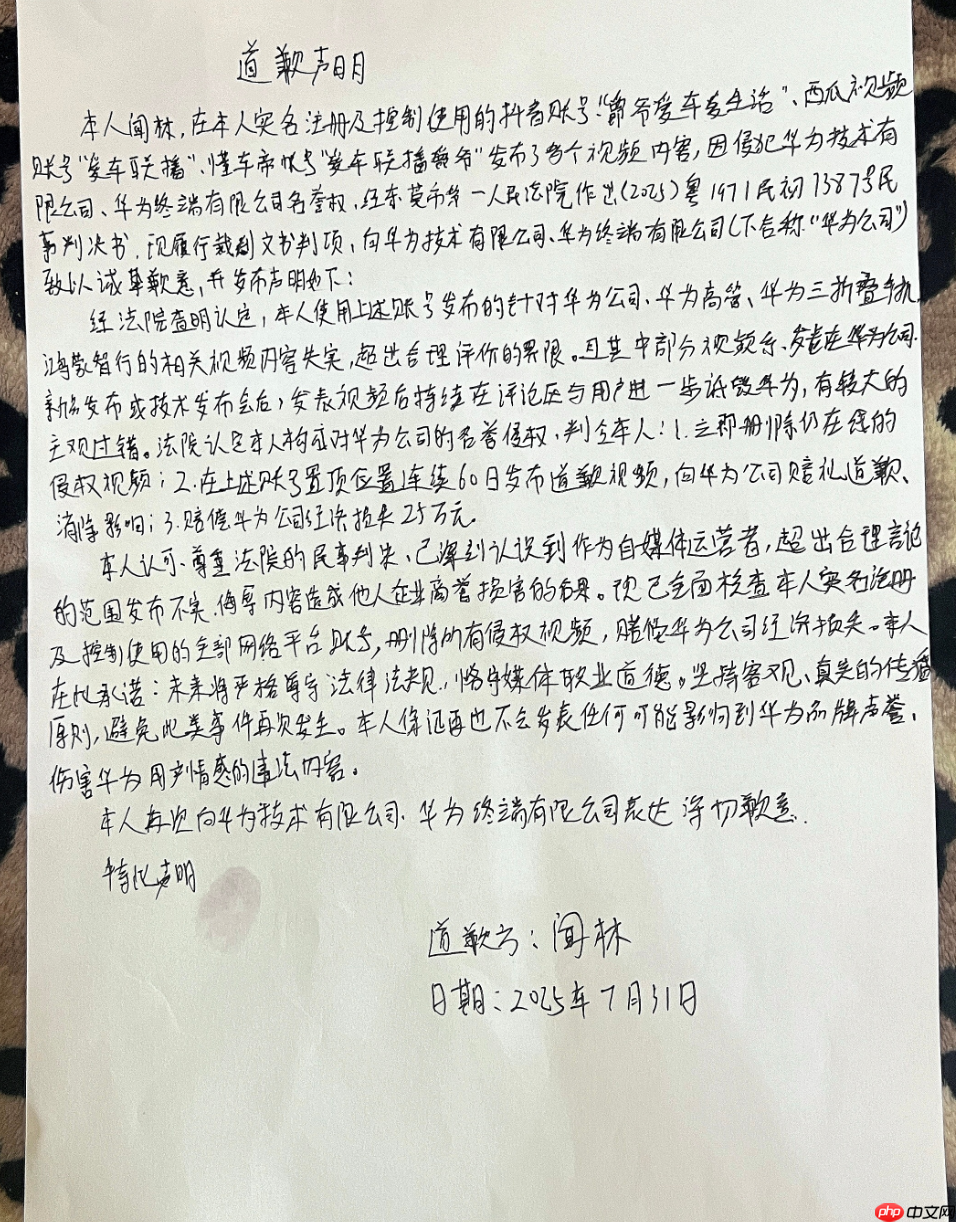 道歉声明
本人闻林,在本人实名注册及控制使用的抖音账号“爵爷爱车爱生活”、西瓜视频
账号“爱车联播”、懂车帝帐号“爱车联播爵爷”发布了多个视频内容,因侵犯华为技术有
限公司、华为终端有限公司名誉权,经东莞市第一人民法院作出(2025)粤1971民初13873号民
事判决书,现履行裁判文书判项,向华为技术有限公司、华为终端有限公司(下合称“华为公司”)
致以诚挚歉意,并发布声明如下:
经法院查明认定,本人使用上述账号发布的针对华为公司、华为高管、华为三折叠手机、
鸿蒙智行的相关视频内容失实,超出合理评价的界限。且其中部分视频系发表在华为公司
新品发布或技术发布会后,发表视频后持续在评论区与用户进一步诋毁华为,有较大的
主观过错。法院认定本人构成对华为公司的名誉侵权,判令本人:1.立即删除仍在线的
侵权视频;2.在上述账号置顶位置连续60日发布道歉视频,向华为公司赔礼道歉、
消除影响;3.赔偿华为公司经济损失25万元。
本人认可、尊重法院的民事判决,已深刻认识到作为自媒体运营者,超出合理言论
的范围发布不实、侮辱内容造成他人企业商誉损害的后果。现已全面核查本人实名注册
及控制使用的全部网络平台账号,删除所有侵权视频,赔偿华为公司经济损失。本人
在此承诺:未来将严格遵守法律法规,恪守媒体职业道德。坚持客观、真实的传播
原则,避免此类事件再次发生。本人保证再也不会发表任何可能影响到华为品牌声誉、
伤害华为用户情感的违法内容。
本人再次向华为技术有限公司、华为终端有限公司表达深切歉意.
特此声明
道歉方:闻林
日期:2025年7月31日
php中文网